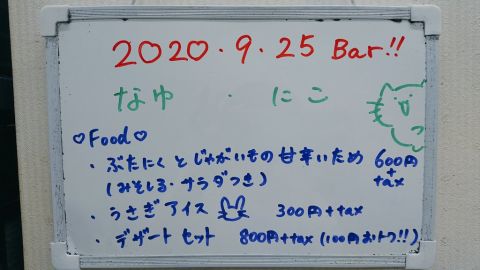 2020.9.25 Bar!!
なゆ ・ にこ
♡Food♡
・ぶたにくとじゃがいもの甘辛いため 600円
(みそしる・サラダつき) + tax
・うさぎアイス 300円+tax
・デザートセット 800円+tax (100円おトク!!)